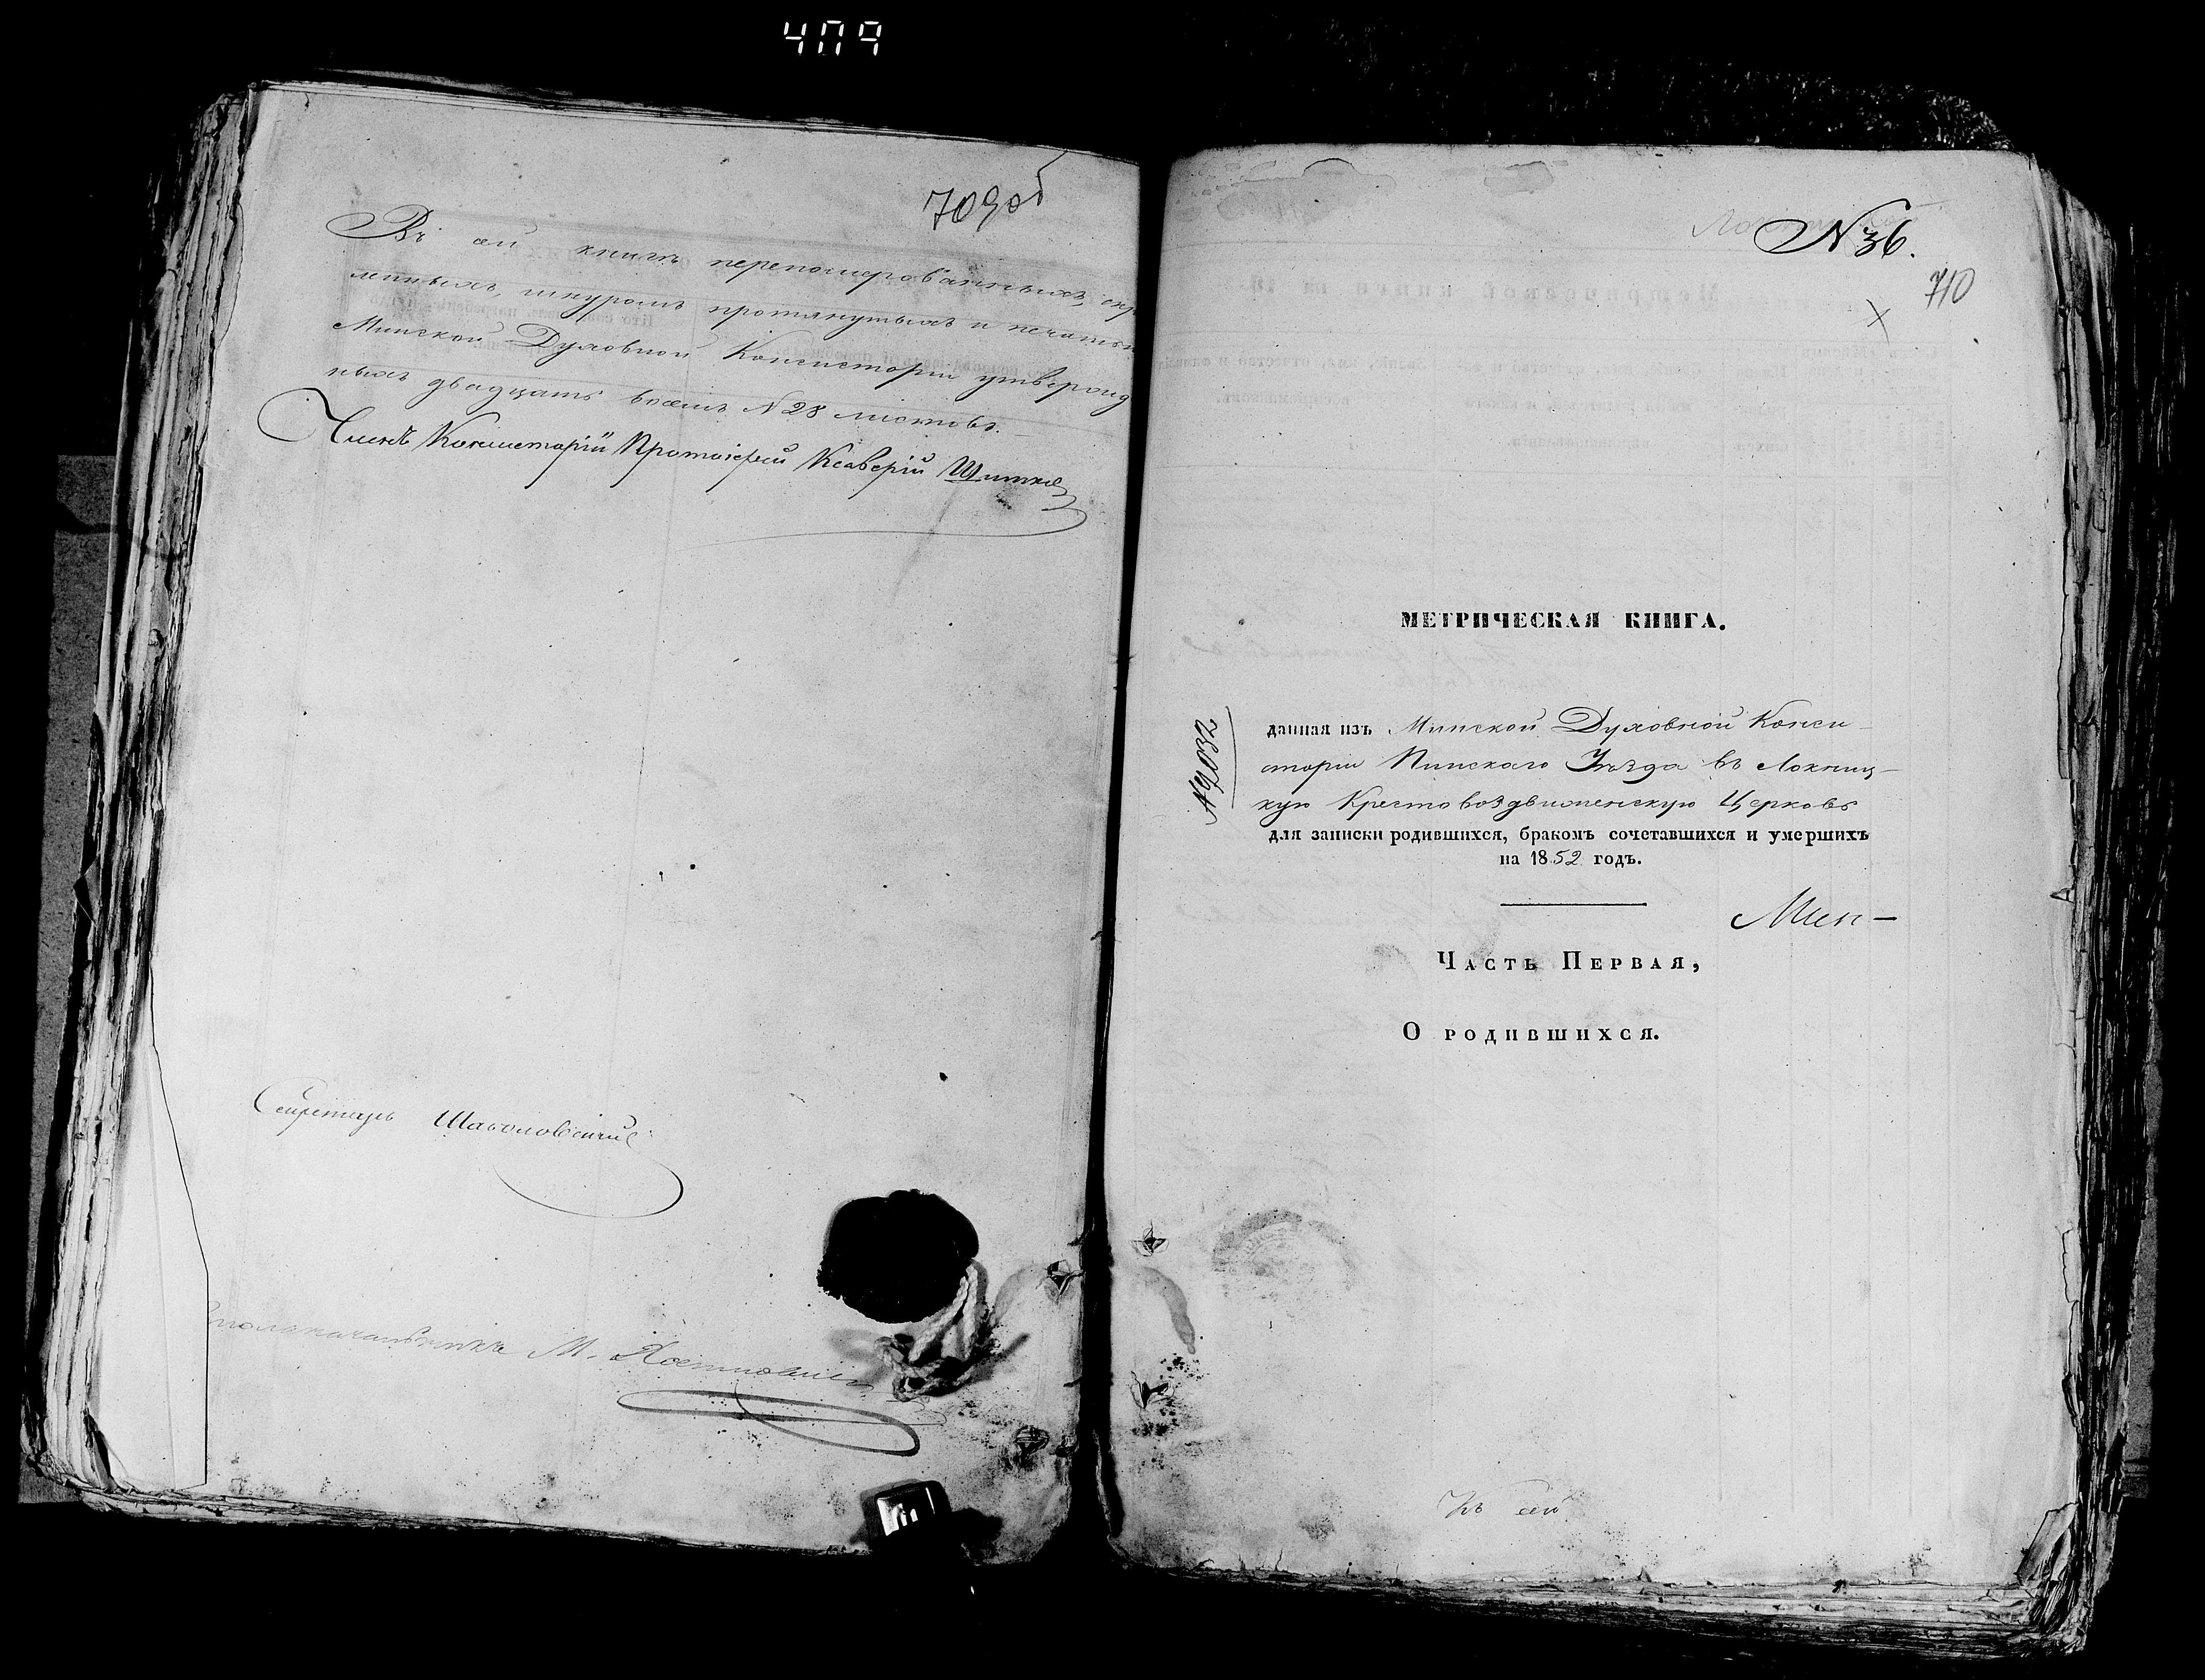 409
709 об
Въ сей книгѣ перенумерованныхъ, скрѣ
пленныхъ, шнуромъ протянутыхъ и печатью
Минской Духовной Консисторіи утвержд
ныхъ двадцать восемь N 28 листовъ.
Членъ Консисторіи Протоіерей Ксаверій
Секретарь
Столоначальникъ М.
N 36.
710
МЕТРИЧЕСКАЯ КНИГА.
N 9032
данная изъ Минской Духовной Конси-
сторіи Пинскаго Уѣзда въ Локниц-
кую Крестовоздвиженскую Церковь
для записки родившихся, бракомъ сочетавшихся и умершихъ
на 1852 годъ.
Мин-
Часть Первая,
О родившихся.
Къ сей